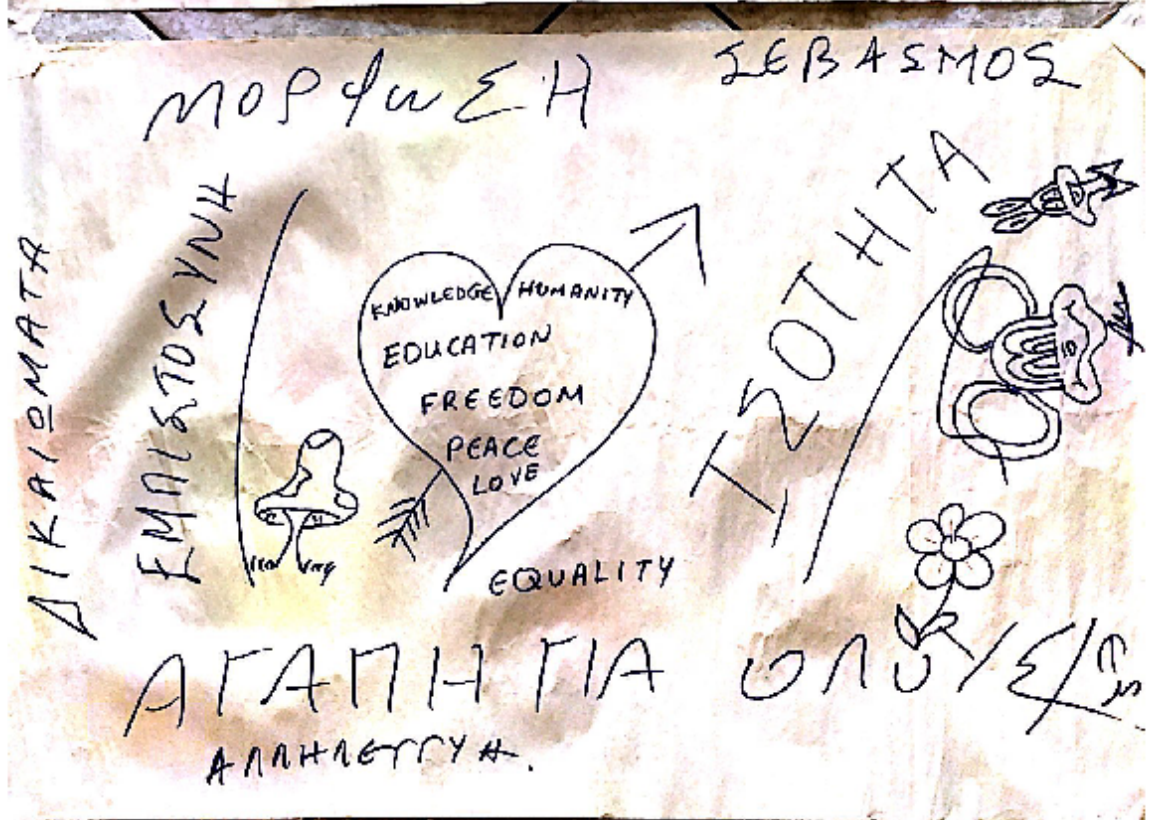 ΜΟΡΦωΣΗ
ΣΕΒΑΣΜΟΣ
ΔΙΚΑΙΟΜΑΤΑ
ΕΜΠΙΣΤΟΣΥΝΗ
KNOWLEDGE HUMANITY
EDUCATION
FREEDOM
PEACE
LOVE
EQUALITY
ΙΣΟΤΗΤΑ
ΑΓΑΠΗ ΓΙΑ ΟΛΟΥΣ/ΕΣ
ΑΛΛΗΛΕΓΓΥΗ.